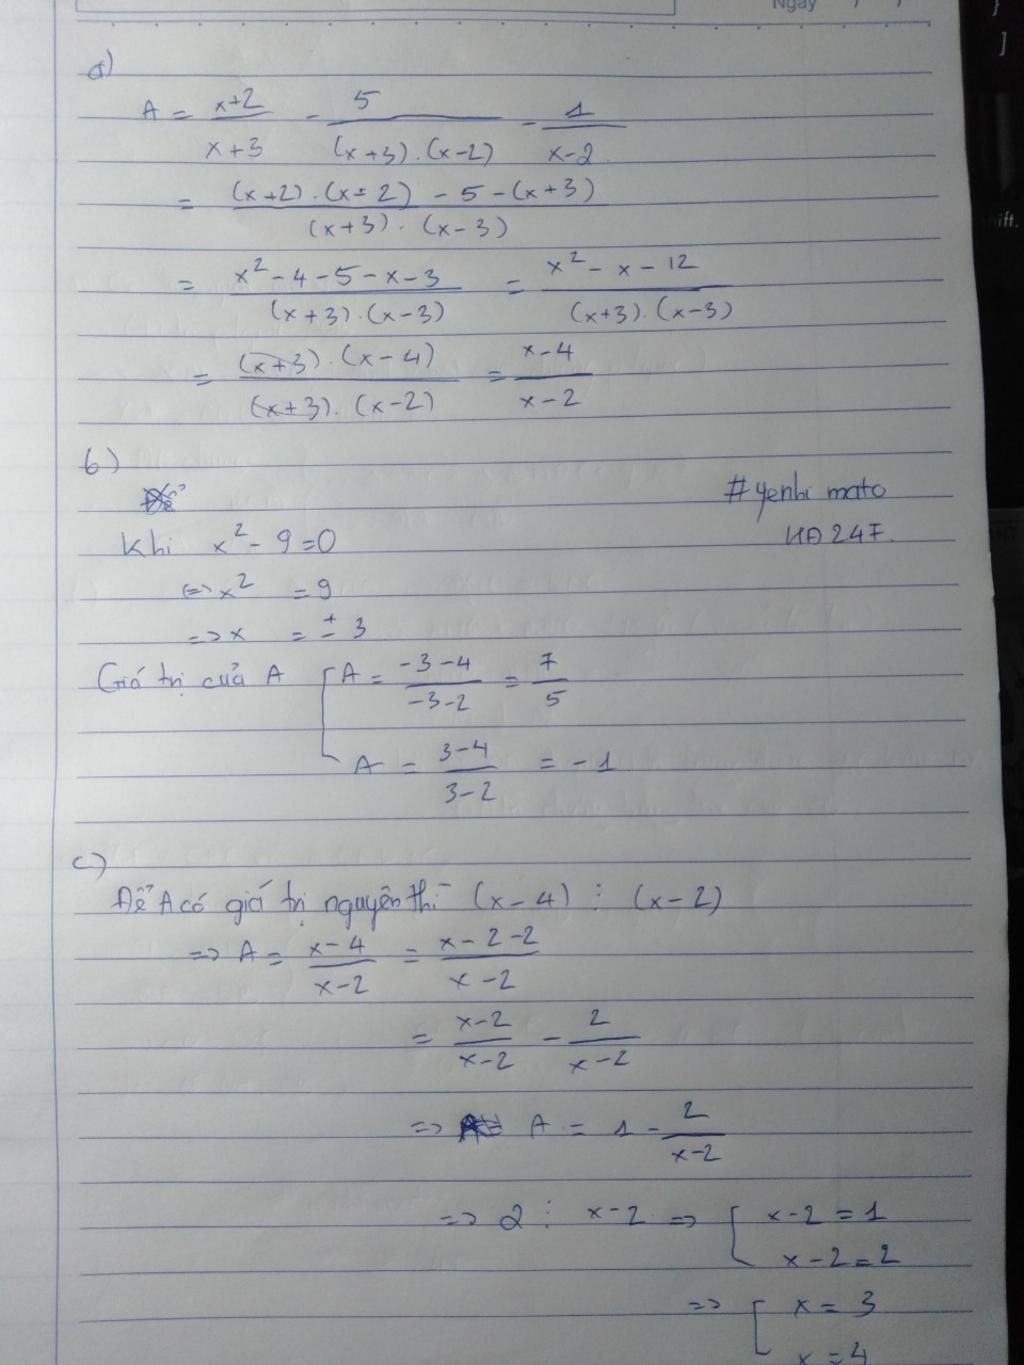 Ngày / /
a)
A = \frac{x+2}{x+3} - \frac{5}{(x+3).(x-2)} - \frac{1}{x-2}
= \frac{(x+2).(x-2) - 5 - (x+3)}{(x+3).(x-3)}
= \frac{x^2 - 4 - 5 - x - 3}{(x+3).(x-3)} = \frac{x^2 - x - 12}{(x+3).(x-3)}
= \frac{(x+3).(x-4)}{(x+3).(x-2)} = \frac{x-4}{x-2}
b)
#yenhi mato
Khi x^2 - 9 = 0
HD247.
<=> x^2 = 9
=> x = ± 3
Giá trị của A [ A = \frac{-3-4}{-3-2} = \frac{7}{5}
A = \frac{3-4}{3-2} = -1
c)
Để A có giá trị nguyên thì (x-4) ⋮ (x-2)
=> A = \frac{x-4}{x-2} = \frac{x-2-2}{x-2}
= \frac{x-2}{x-2} - \frac{2}{x-2}
=> A = 1 - \frac{2}{x-2}
=> 2 ⋮ x-2 => [ x-2 = 1
x-2 = 2
=> [ x = 3
x = 4